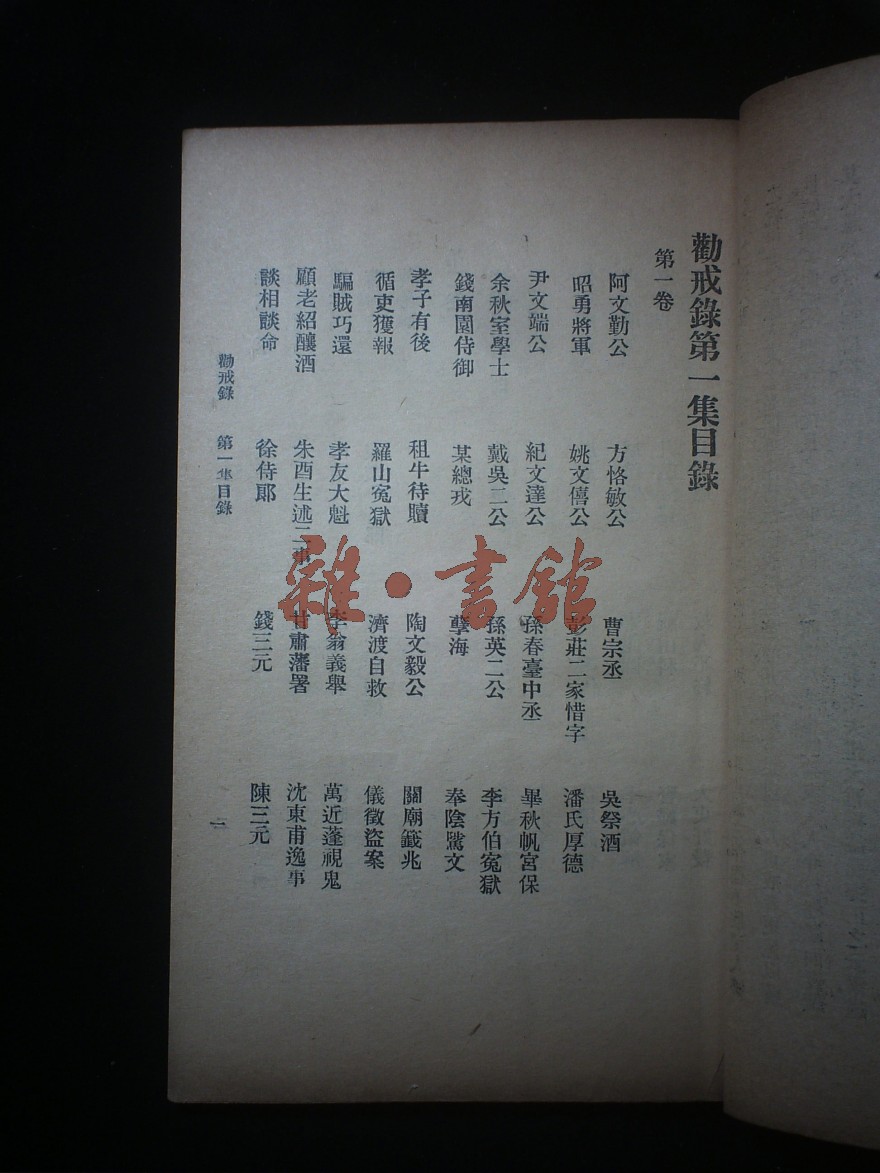 勸戒錄第一集目錄
第一卷
阿文勤公 方恪敏公 曹宗丞 吳祭酒
昭勇將軍 姚文僖公 彭莊二家惜字 潘氏厚德
尹文端公 紀文達公 孫春臺中丞 畢秋帆宮保
余秋室學士 戴吳二公 孫英二公 李方伯冤獄
錢南園侍御 某總戎 孽海 奉陰騭文
孝子有後 租牛待贖 陶文毅公 關廟籤兆
循吏獲報 羅山冤獄 濟渡自救 儀徵盜案
騙賊巧還 孝友大魁 李翁義舉 萬近蓬視鬼
顧老紹釀酒 朱酉生述二事 甘肅藩署 沈東甫逸事
談相談命 徐侍郎 錢三元 陳三元
勸戒錄 第一集目錄 一
雜·書館